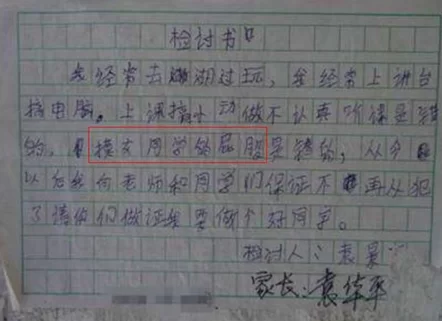 检讨书
我经常去湖边玩,我经常上讲台
搞电脑。上课搞小动做不认真听课是错
的。摸女同学的屁股是错的,从今
以后我向老师和同学们保证不再从犯
了请你们做证我要做个好同学。
检讨人:袁昊
家长:袁华平